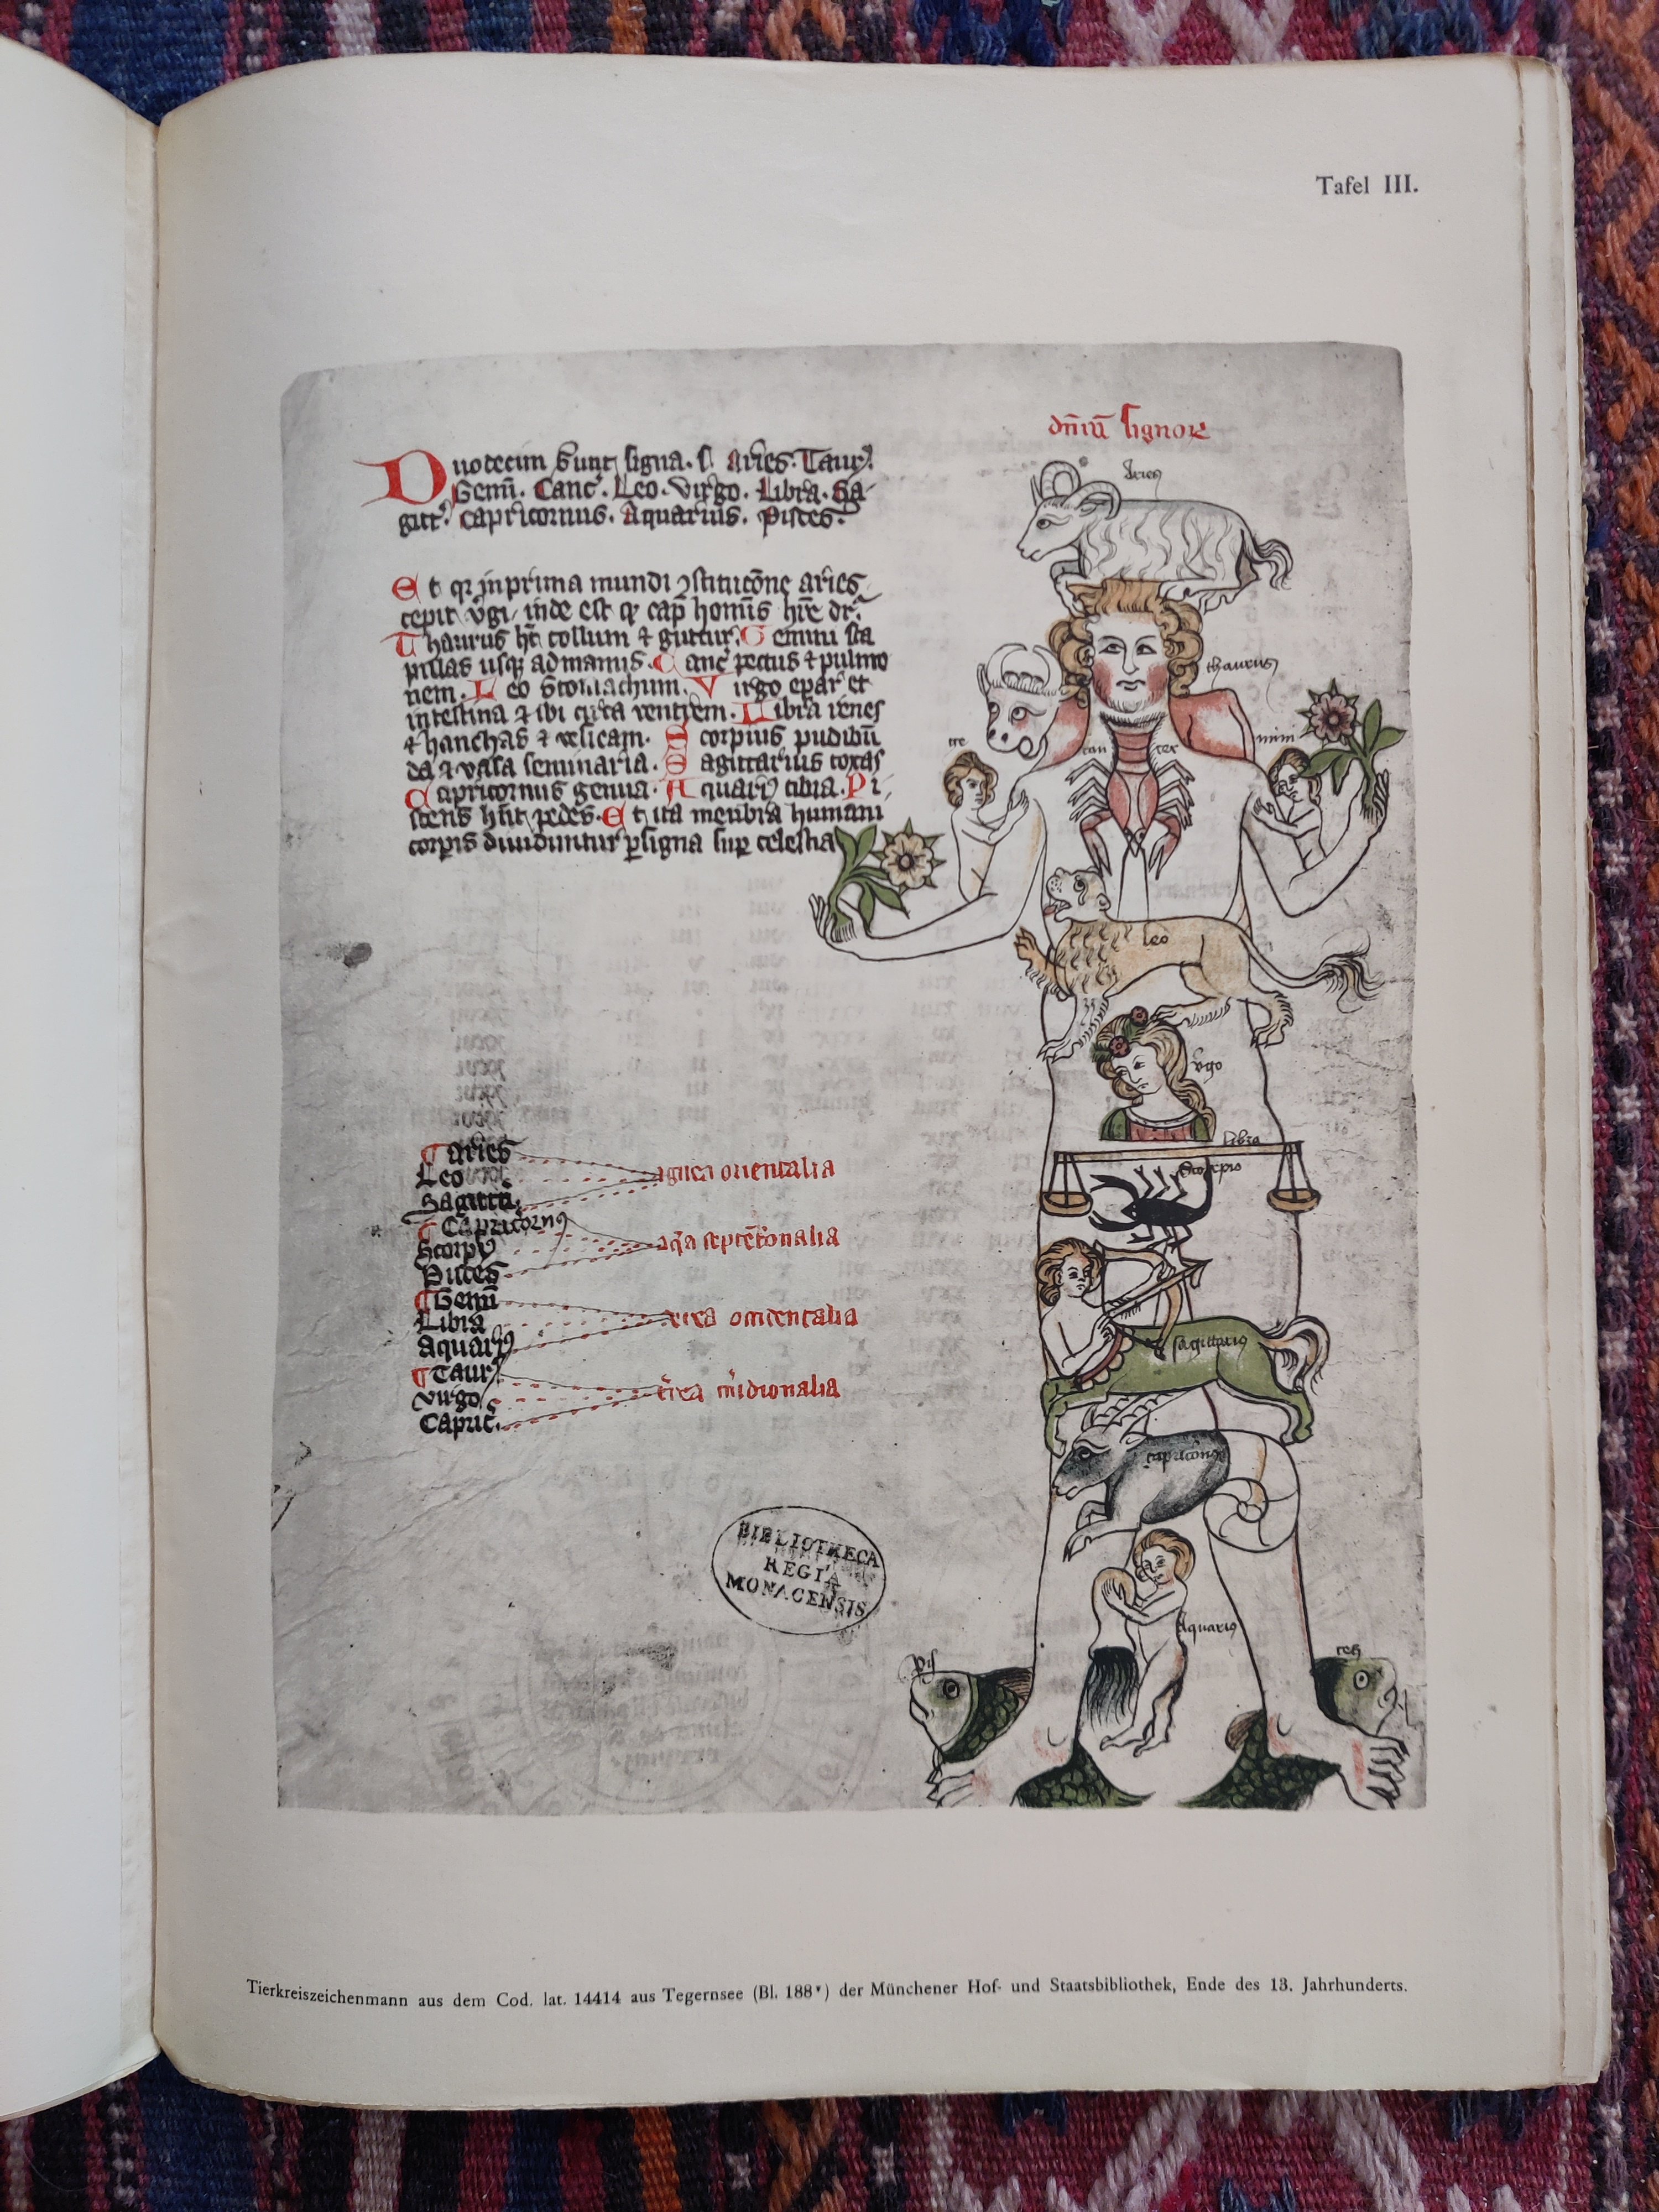 Tafel III.
Duodecim sunt signa. s. aries. Taurꝰ.
Gemī. Canc̓. Leo. Virgo. Libra. Sa-
gitt. Capricornus. Aquarius. Pisces.
Et qꝛ in prima mundi ꝯstitucōne aries
cepit v̓gi, inde est qꝫ cap̄ homīs hr̄e dr̄.
Thaurus hꝫ collum ⁊ guttur. Gemini sca
pulas usqꝫ ad manus. Canc̓ pectus ⁊ pulmo
nem. Leo stomachum. Virgo epar et
intestina ⁊ ibi circa ventrem. Libra renes
⁊ hanchas ⁊ vesicam. Scorpius pudibū
da ⁊ vasa seminaria. Sagittarius coxas
Capricornus genua. Aquariꝰ tibia. Pi
sces hn̄t pedes. Et ita menbra humani
corꝑis diuiduntur ꝑ signa sup̄ celestia
dn̄iū signoꝝ
Aries
thaurus
ge
mini
can
cer
leo
v̓go
libra
Scorpio
sagittariꝰ
capricornꝰ
Aquariꝰ
pis
ces
aries
Leo
Sagittā.
ignea orientalia
Capricornꝰ
Scorpꝰ
Pisces
aq̄a septētonalia
Gemī
Libra
Aquariꝰ
aerea occidentalia
Taurꝰ
virgo
Capric̄.
t̓rea m̓idionalia
BIBLIOTHECA
REGIA
MONACENSIS.
Tierkreiszeichenmann aus dem Cod. lat. 14414 aus Tegernsee (Bl. 188ᵛ) der Münchener Hof- und Staatsbibliothek, Ende des 13. Jahrhunderts.